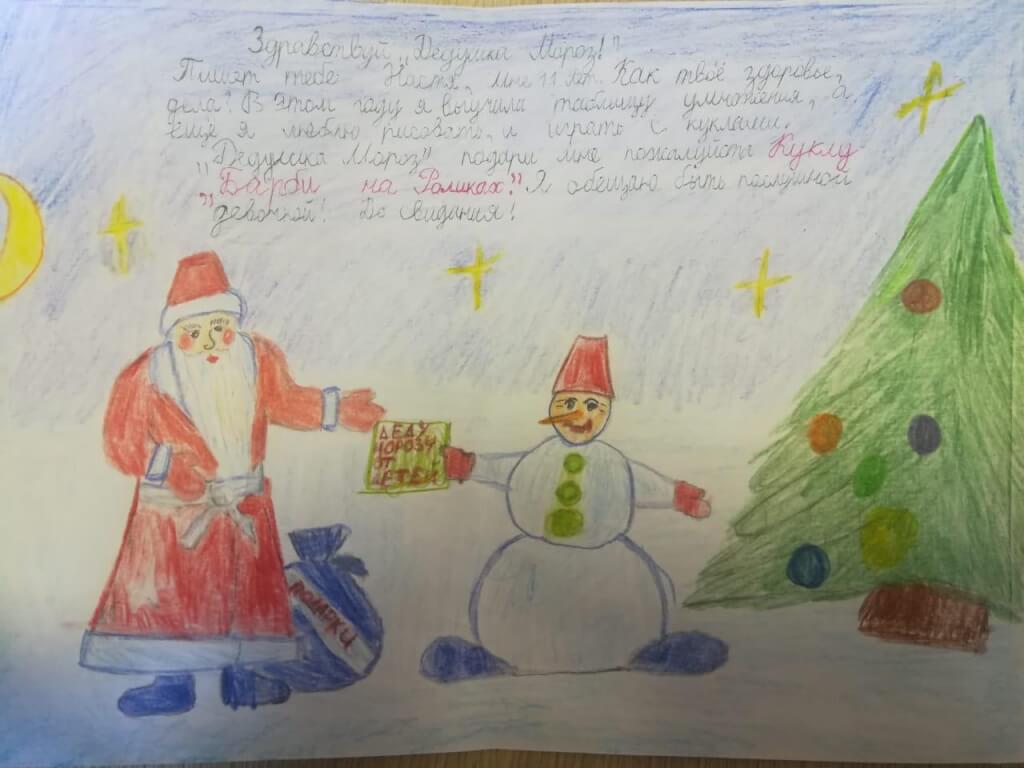 Здравствуй „Дедушка Мороз!"
Пишет тебе Настя, мне 11 лет. Как твоё здоровье,
дела? В этом году я выучила таблицу умножения, а
ещё я люблю рисовать, и играть с куклами.
„Дедушка Мороз" подари мне пожалуйста Куклу
"Барби на Роликах." Я обещаю быть послушной
девочкой! До Свидания!
ДЕДУ
МОРОЗУ
ДЕТЕЙ
ПОДАРКИ